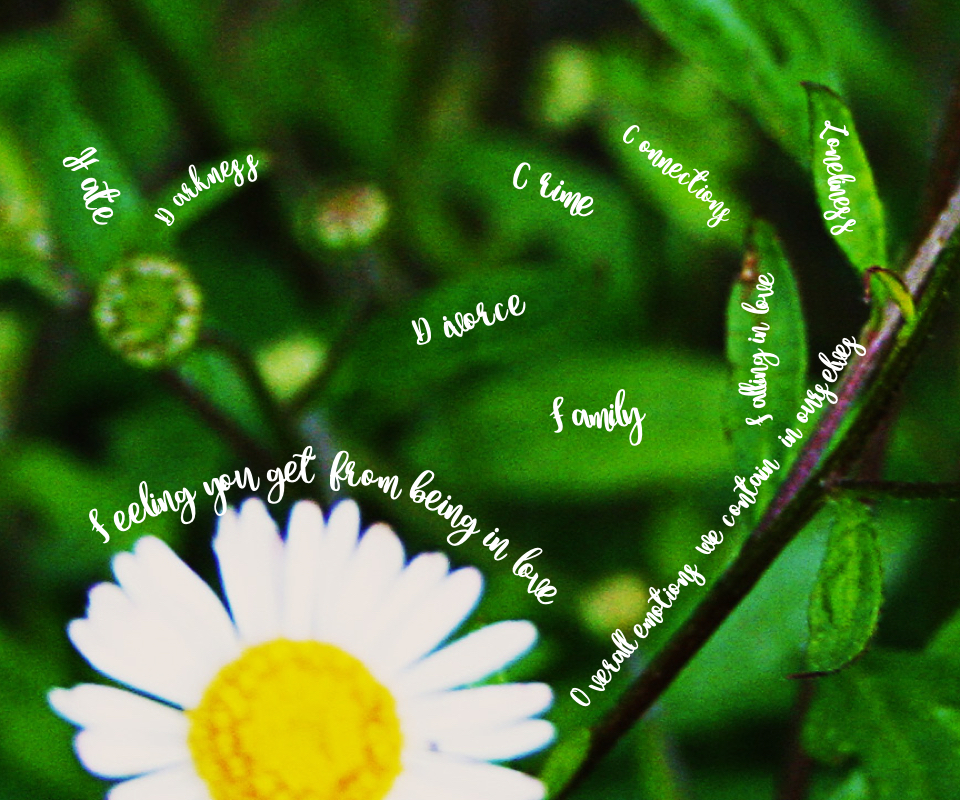 Hate
Darkness
Crime
Connections
Loneliness
Divorce
Falling in love
Family
Feeling you get from being in love
Overall emotions we contain in ourselves